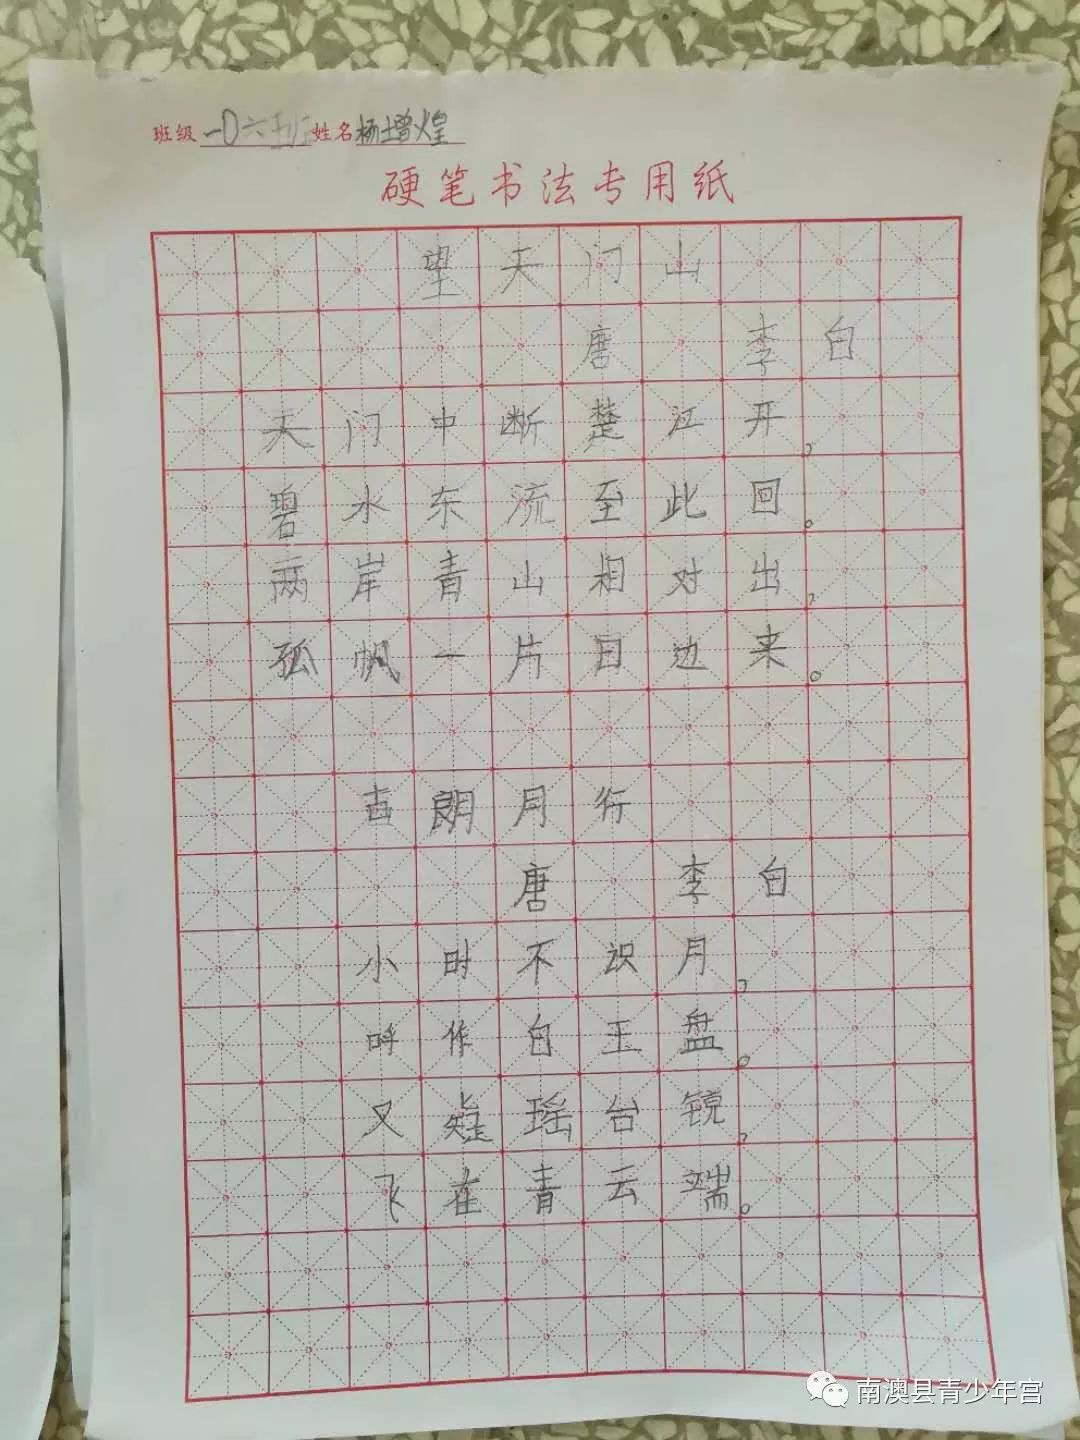 班级 一(六)班 姓名 杨增煌
硬笔书法专用纸
望天门山
唐 李白
天门中断楚江开，
碧水东流至此回。
两岸青山相对出，
孤帆一片日边来。
古朗月行
唐 李白
小时不识月，
呼作白玉盘。
又疑瑶台镜，
飞在青云端。
南澳县青少年宫